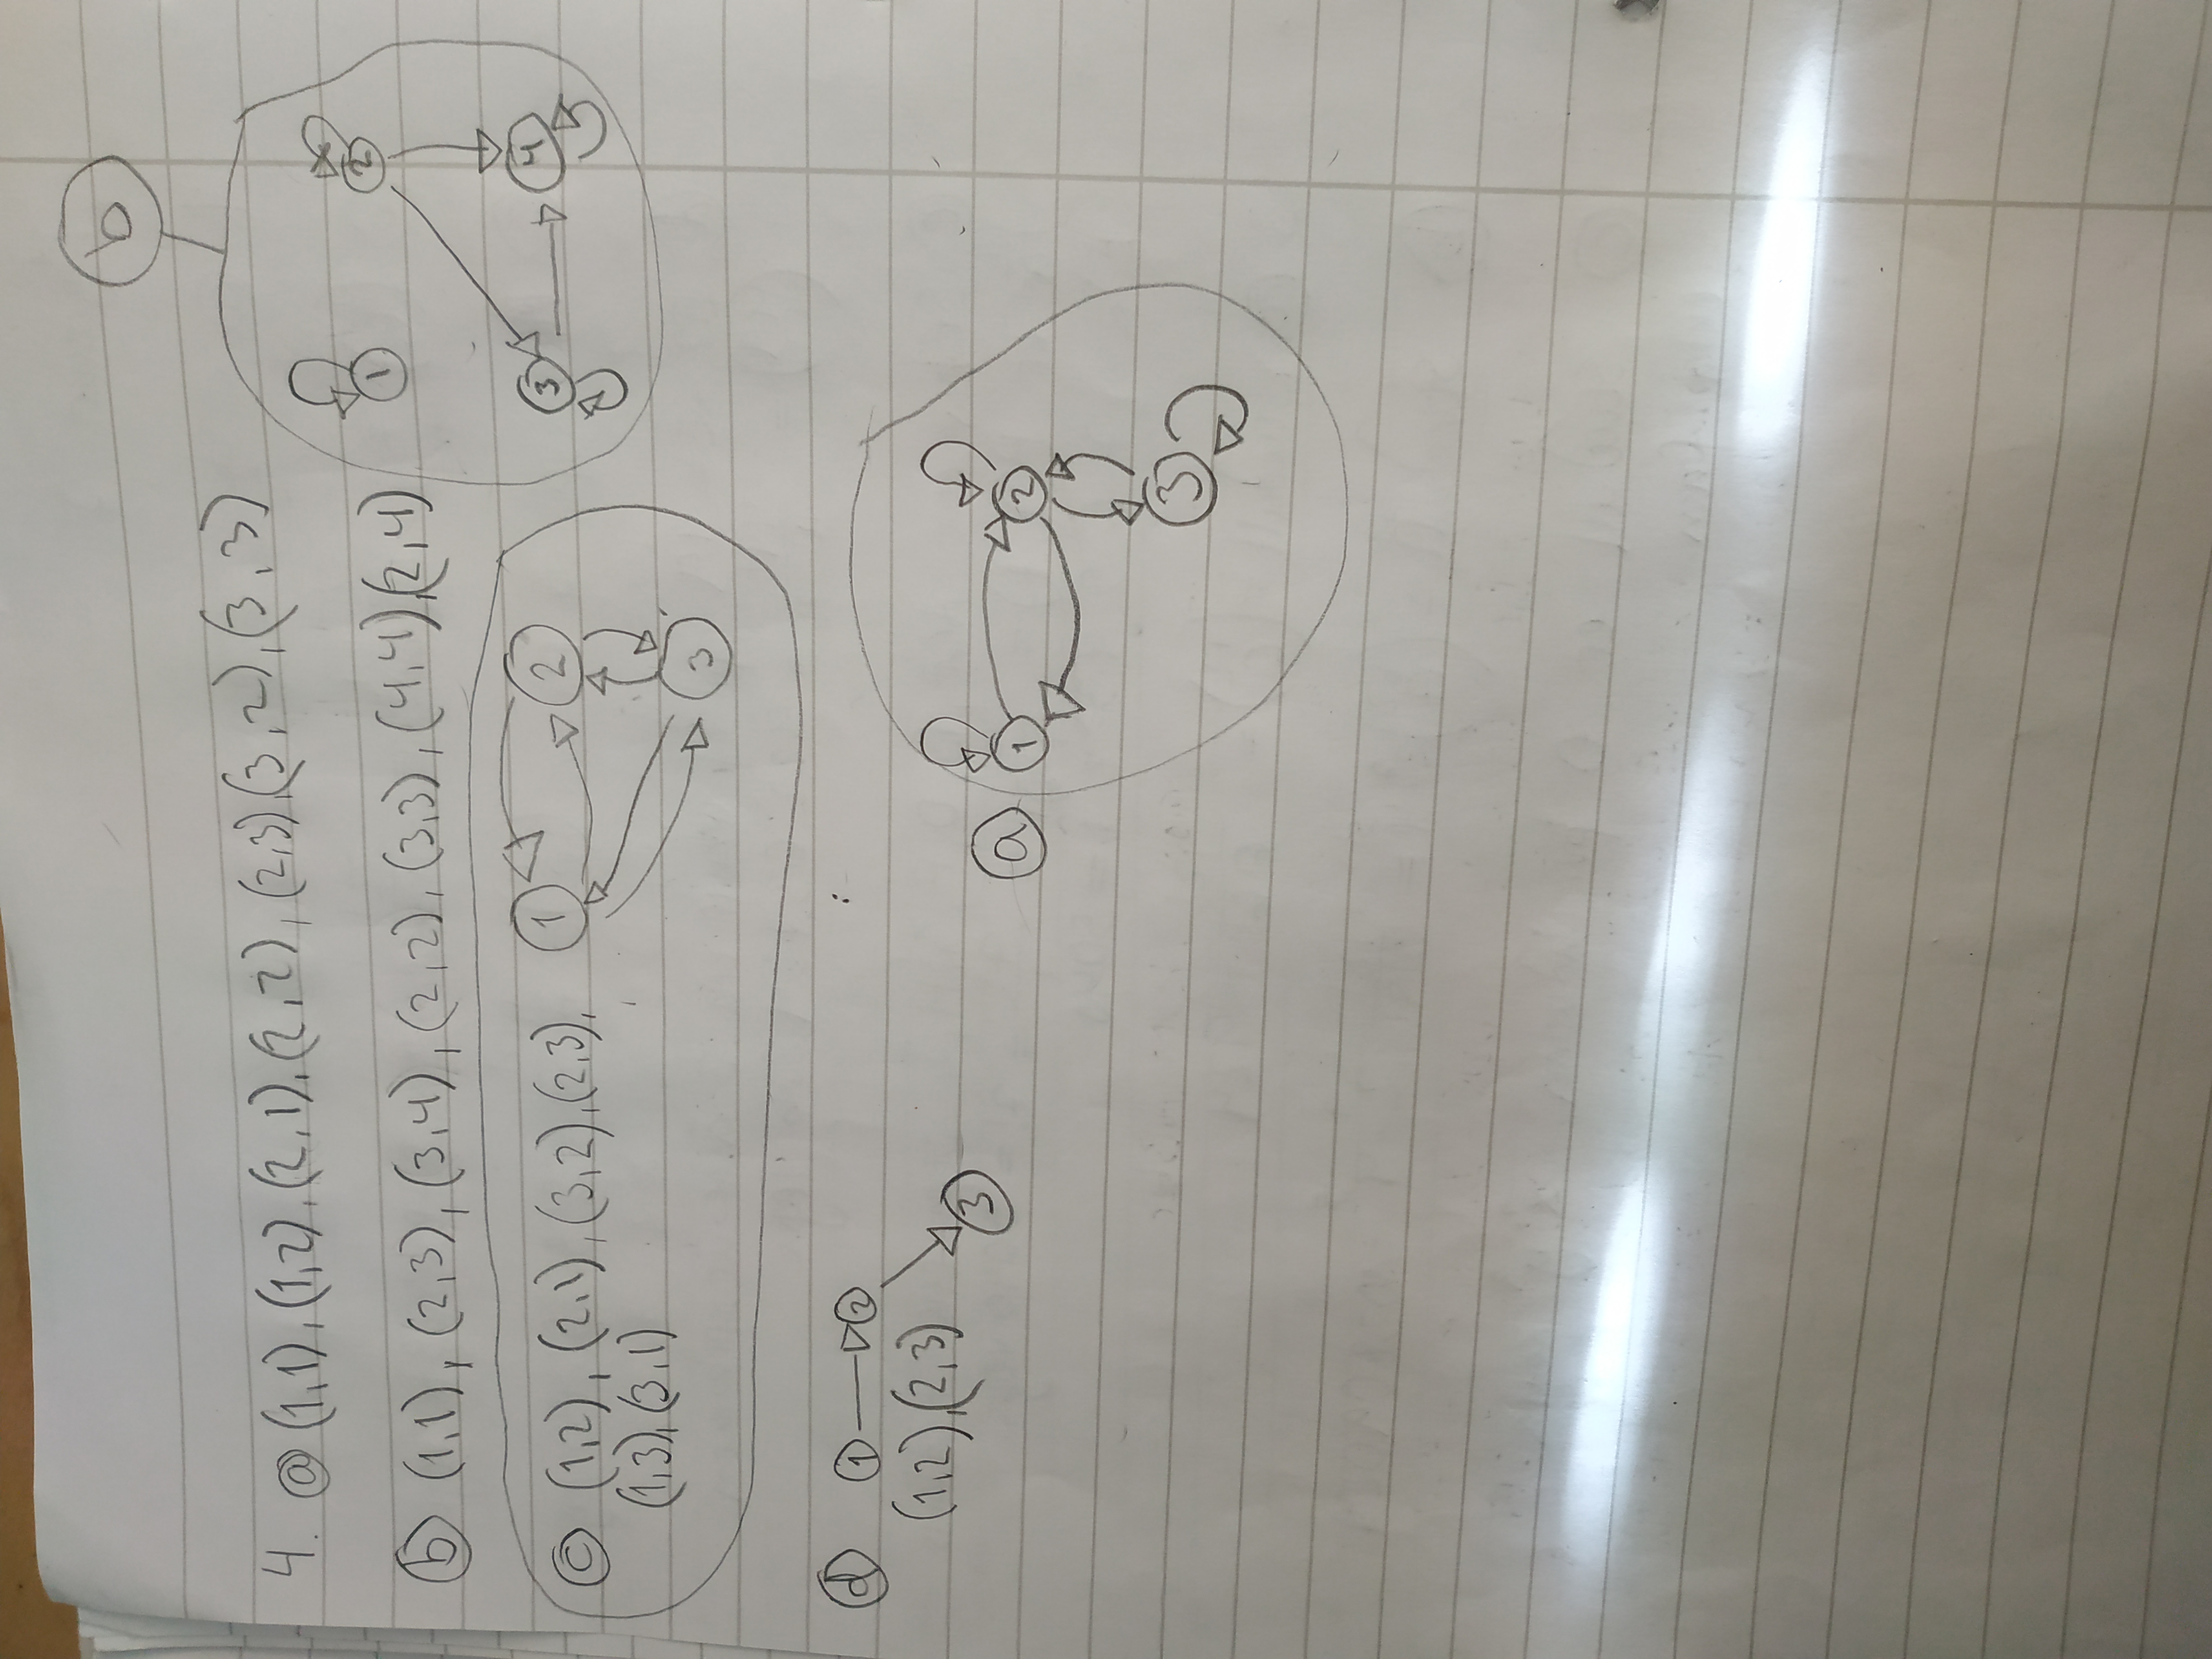 b
4. a (1,1), (1,2), (2,1), (2,2), (2,3), (3,2), (3,3)
b (1,1), (2,3), (3,4), (2,2), (3,3), (4,4), (2,4)
1 2
3 4
c (1,2), (2,1), (3,2), (2,3),
(1,3), (3,1)
1 2
3
d 1 2
(1,2), (2,3)
3
a 1 2
3